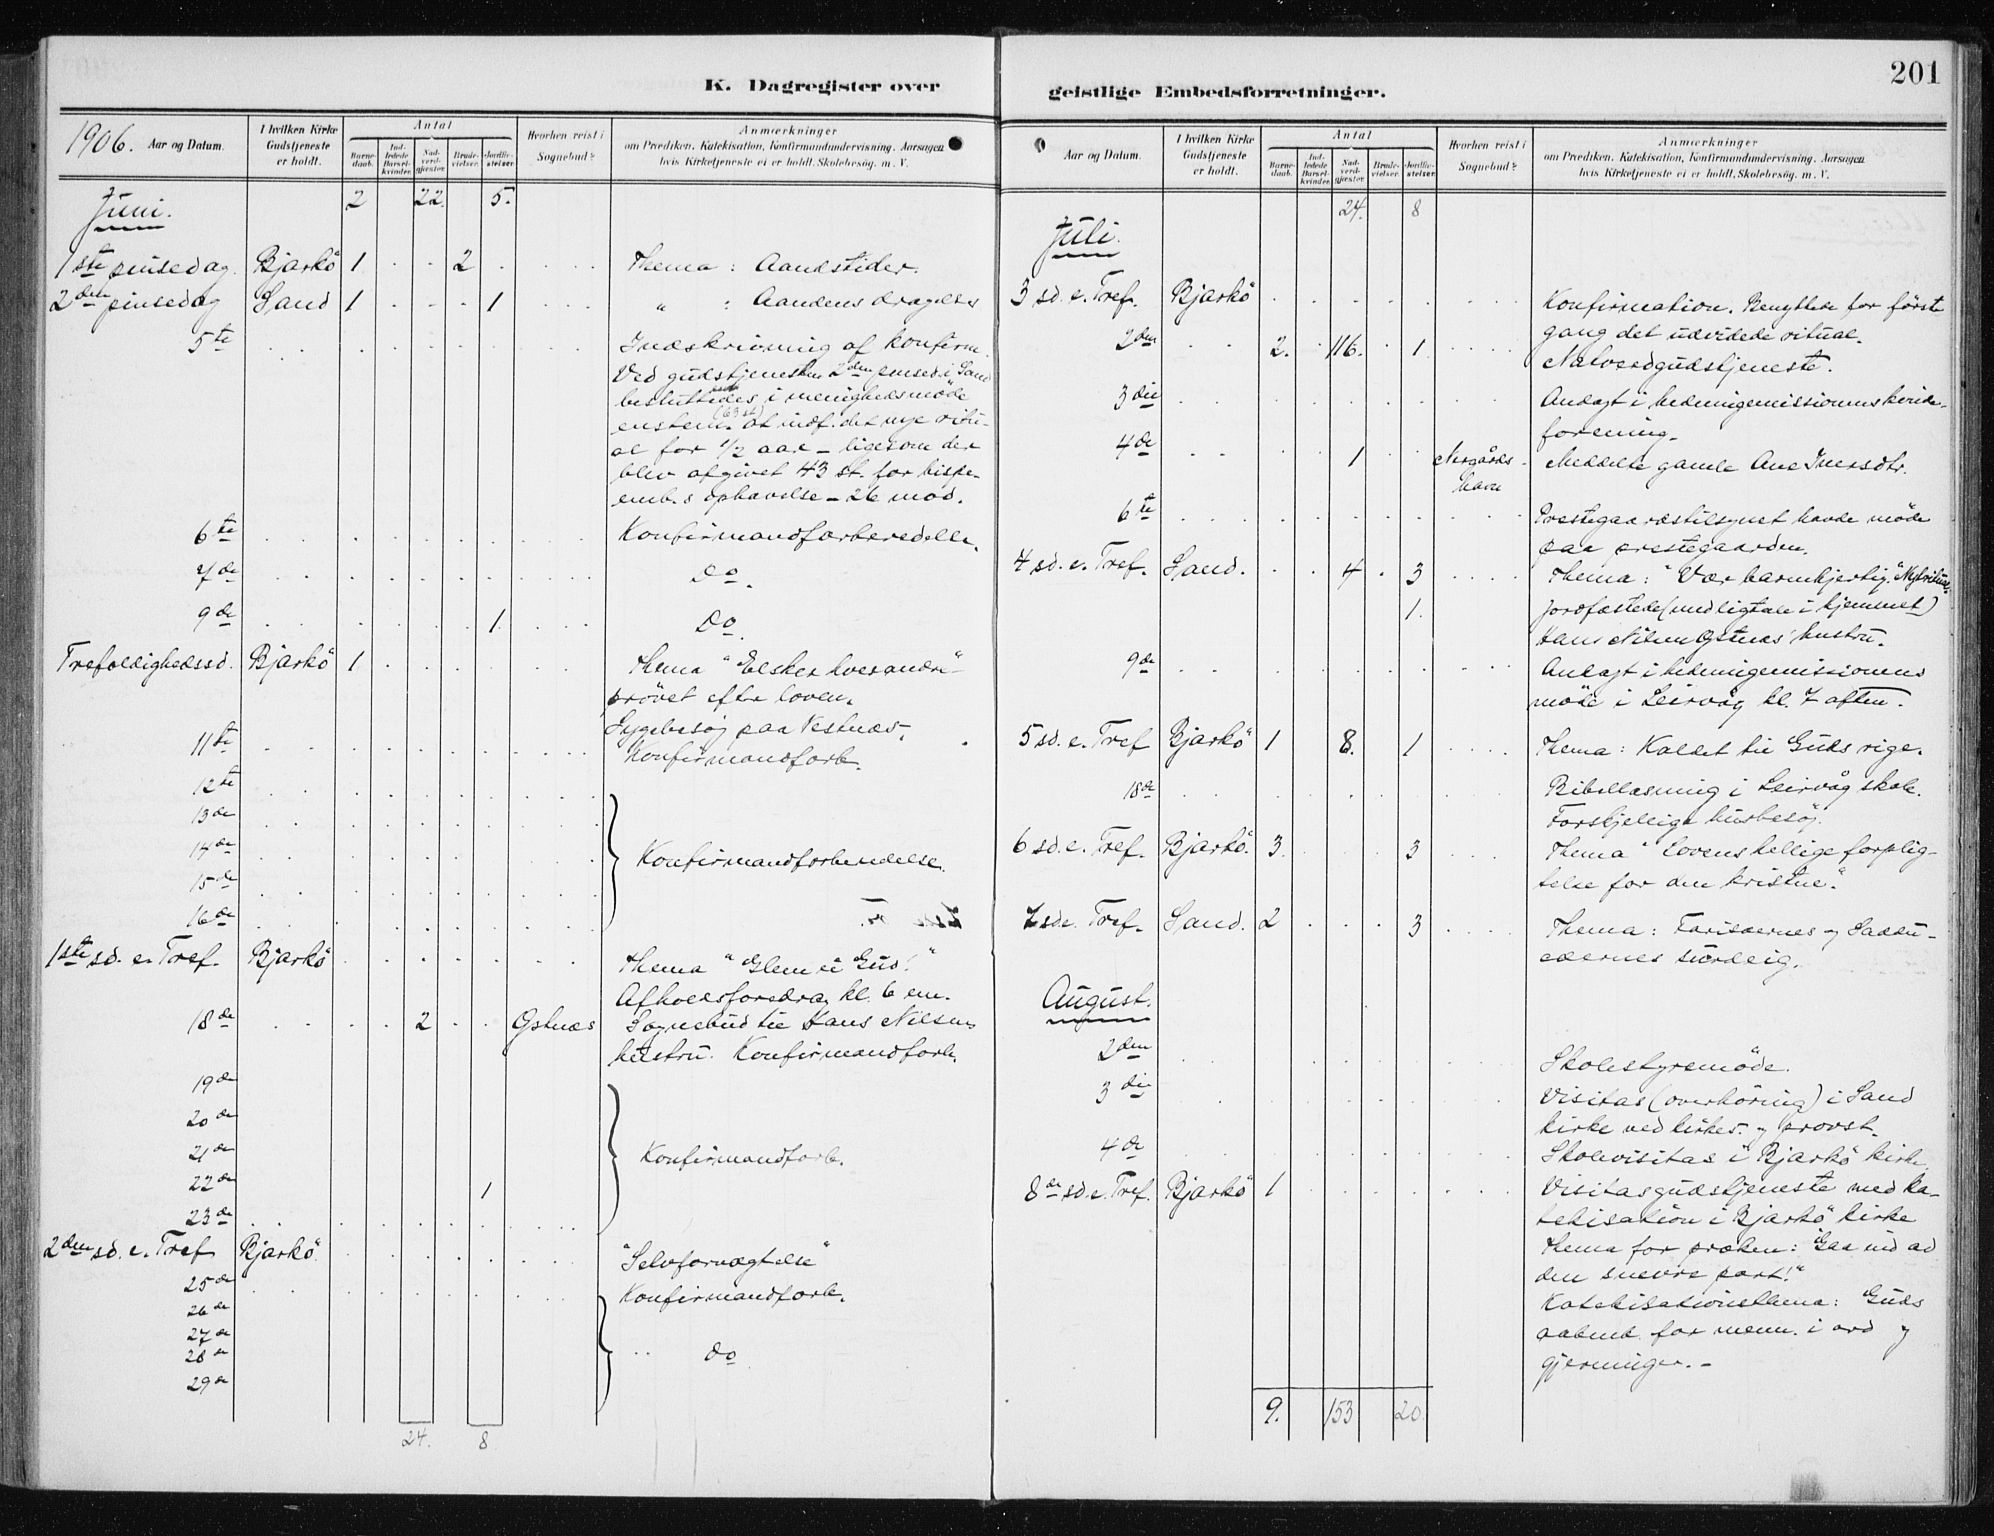 K. Dagregister over
1906. Aar og Datum. I hvilken Kirke Gudstjeneste er holdt. Antal Barnedaab. Indledede Barselkvinder. Nadverdgjæster. Brudevielser. Jordfæstelser. Hvorhen reist i Sognebud? Anmærkninger om Prædiken, Katekisation, Konfirmandundervisning, Aarsagen hvis Kirketjeneste ei er holdt, Skolebesøg. m. V.
Juni. 2 22. 5.
1ste pinsedag. Bjarkö 1 2 Thema: Aandstider.
2den pinsedag Sand 1 1 " : Aandens dragelse
5te Indskrivning af konfirm.
Ved gudstjenesten 2den pinsed. i Sand
besluttedes i menighedsmöde
enstem. (63 st) at indf. det nye ritu-
al for 1/2 aar – ligesom der
blev afgivet 43 st. for bispe-
emb.s ophævelse – 26 mod.
6te Konfirmandforberedelse.
7de Do.
9de 1 Do.
Trefoldighedssd. Bjarkö 1 Thema "Elsker hverandre"
prövet efter loven.
Sygebesög paa Vestnæs.
11te Konfirmandforb.
12te
13de
14de Konfirmandforberedelse.
15de
16de
1ste sd. e. Tref. Bjarkö Thema "Glem ei Gud!"
Afholdsforedrag kl. 6 em.
18de 2 Gstnæs Sognebud til Hans Nilsens
hustru. Konfirmandforb.
19de
20de
21de Konfirmandforb.
22de 1
23de
2den sd. e. Tref Bjarkö "Selvfornægtelse"
25de Konfirmandforb.
26de
27de
28de " do
29de
24. 8
geistlige Embedsforretninger.
201
Aar og Datum. I hvilken Kirke Gudstjeneste er holdt. Antal Barnedaab. Indledede Barselkvinder. Nadverdgjæster. Brudevielser. Jordfæstelser. Hvorhen reist i Sognebud? Anmærkninger om Prædiken, Katekisation, Konfirmandundervisning, Aarsagen hvis Kirketjeneste ei er holdt, Skolebesøg. m. V.
24. 8
Juli.
3 sd. e. Tref. Bjarkö Konfirmation. Benyttede for förste
gang det udvidede ritual.
2den 2. 116. 1 Natverdgudstjeneste.
3die Andagt i hedningemissionens kvinde-
forening.
4de 1 Nergårds- Meddelte gamle Ane Iversdtr.
havn
6te Prestegaardstilsynet havde möde
paa prestegaarden.
4 sd. e. Tref. Sand. 4 3 Thema: "Vær barmhjertig." Nyt ritual.
1. Jordfæstede (med ligtale i hjemmet)
Hans Nilsen Gstnæs' hustru.
9de Andagt i hedningemissionens
möde i Leirvåg kl. 7 aften.
5 sd. e. Tref Bjarkö 1 8. 1 Thema: Kaldet til Guds rige.
18de Bibellæsning i Leirvåg skole.
Forskjellige husbesög.
6 sd. e. Tref. Bjarkö. 3. 3 Thema "Lovens hellige forplig-
telse for den kristne".
7 sd e. Tref. Sand. 2 3 Thema: Farisæernes og Saddu-
cæernes surdeig.
August.
2den Skolestyremöde.
3die Visitas (overhöring) i Sand
kirke ved kirkes. og provst.
4de Skolevisitas i Bjarkö kirke
8de sd. e. Tref. Bjarkö 1 Visitasgudstjeneste med ka-
tekisation i Bjarkö kirke
Thema for præken: Gaa ind ad
den snevre port!"
Katekisationsthema: Guds
aabenb. for menn. i ord og
gjerninger. –
9. 153 20